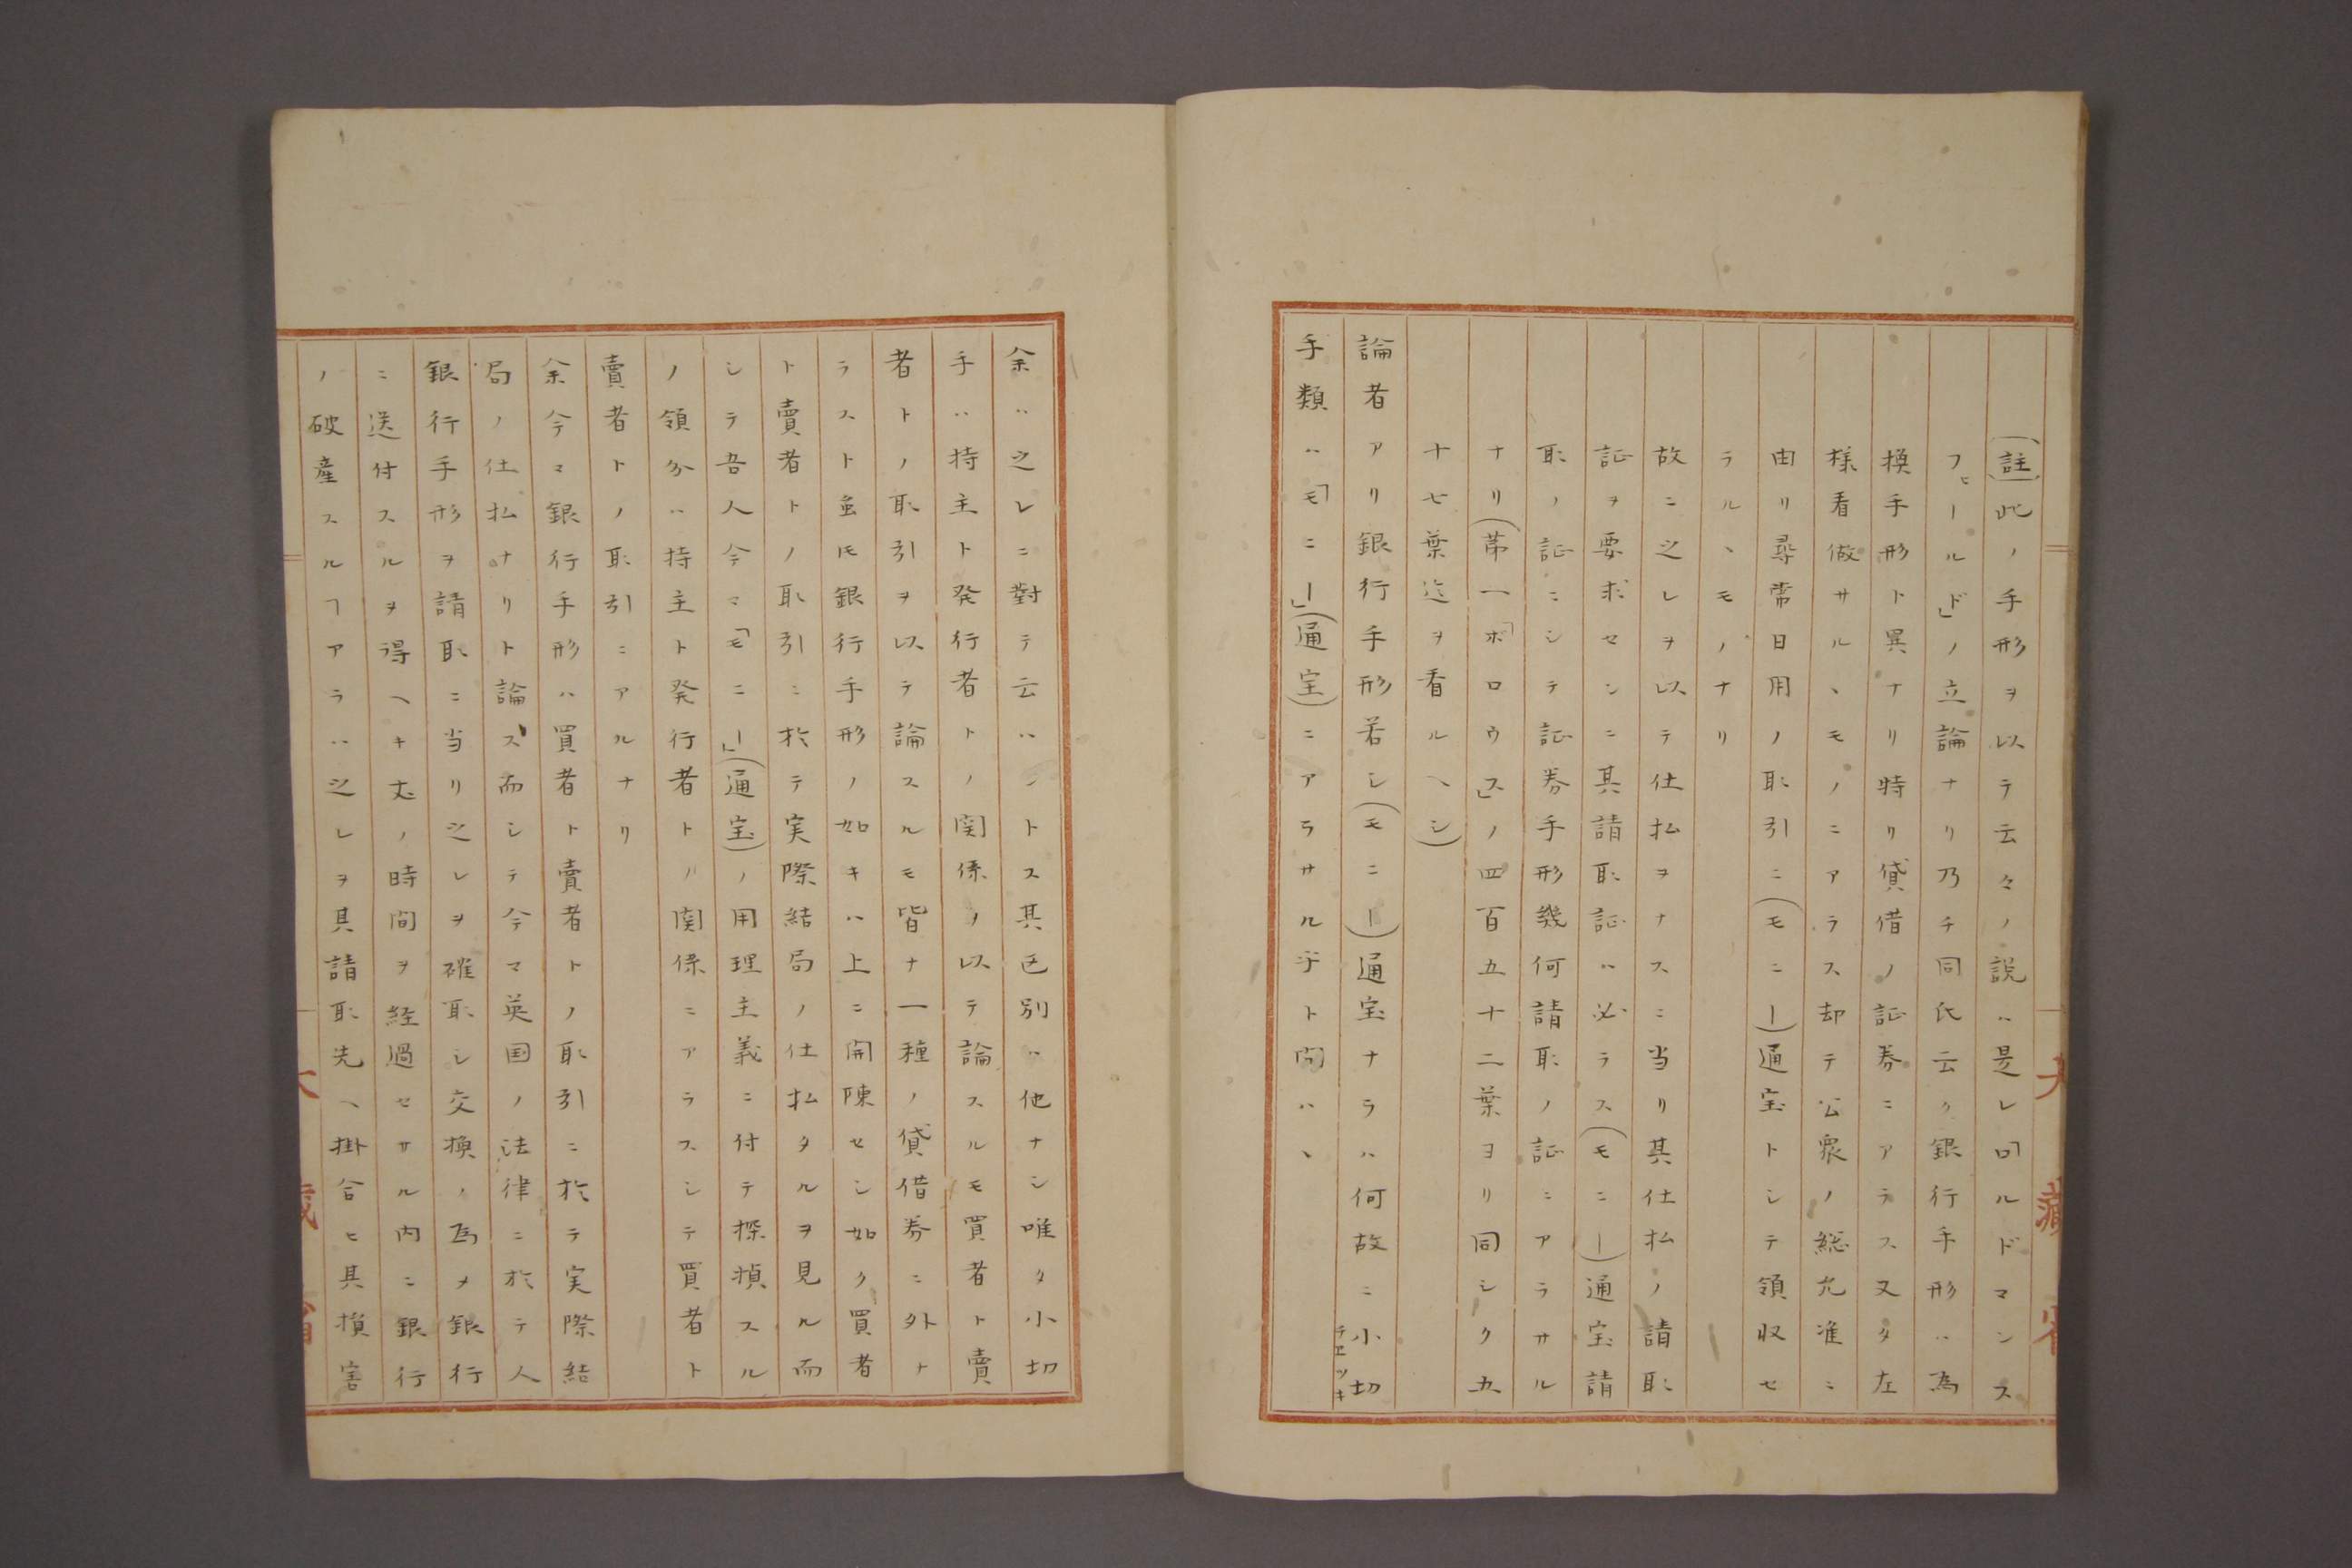 (註)此ノ手形ヲ以テ云々ノ説ハ是レ「ロルドマンス
フヒールド」ノ立論ナリ乃チ同氏云ク銀行手形ハ為
換手形ト異ナリ時リ貸借ノ証券ニアラス又タ左
様看做サルヽモノニアラス却テ公衆ノ総允准ニ
由リ尋常日用ノ取引ニ(モニー)通宝トシテ領収セ
ラルヽモノナリ
故ニ之レヲ以テ仕払ヲナスニ当リ其仕払ノ請取
証ヲ要求センニ其請取証ハ必ラス(モニー)通宝請
取ノ証ニシテ証券手形幾何請取ノ証ニアラサル
ナリ(第一「ボロウス」ノ四百五十二葉ヨリ同シク五
十七葉迄ヲ看ルヘシ)
論者アリ銀行手形若シ(モニー)通宝ナラハ何故ニ小切
テヱツキ
手類ハ「モニー」(通宝)ニアラサル乎ト問ハヽ
余ハ之レニ對テ云ハントス其区別ハ他ナシ唯タ小切
手ハ持主ト発行者トノ関係ノ以テ論スルモ買者ト賣
者トノ取引ヲ以テ論スルモ皆ナ一種ノ貸借券ニ外ナ
ラスト虽𪜈銀行手形ノ如キハ上ニ開陳セシ如ク買者
ト賣者トノ取引ニ於テ実際結局ノ仕払タルヲ見ル而
シテ吾人今マ「モニー」(通宝)ノ用理主義ニ付テ探損スル
ノ領分ハ持主ト発行者トノ関係ニアラスシテ買者ト
賣者トノ取引ニアルナリ
余今マ銀行手形ハ買者ト賣者トノ取引ニ於テ実際結
局ノ仕払ナリト論ス而シテ今マ英国ノ法律ニ於テ人
銀行手形ヲ請取ニ当リ之レヲ確取シ交換ノ為メ銀行
ニ送付スルヲ得ヘキ丈ノ時間ヲ経過セサル内ニ銀行
ノ破産スルヿアラハ之レヲ其請取先ヘ掛合ヒ其損害
大藏省